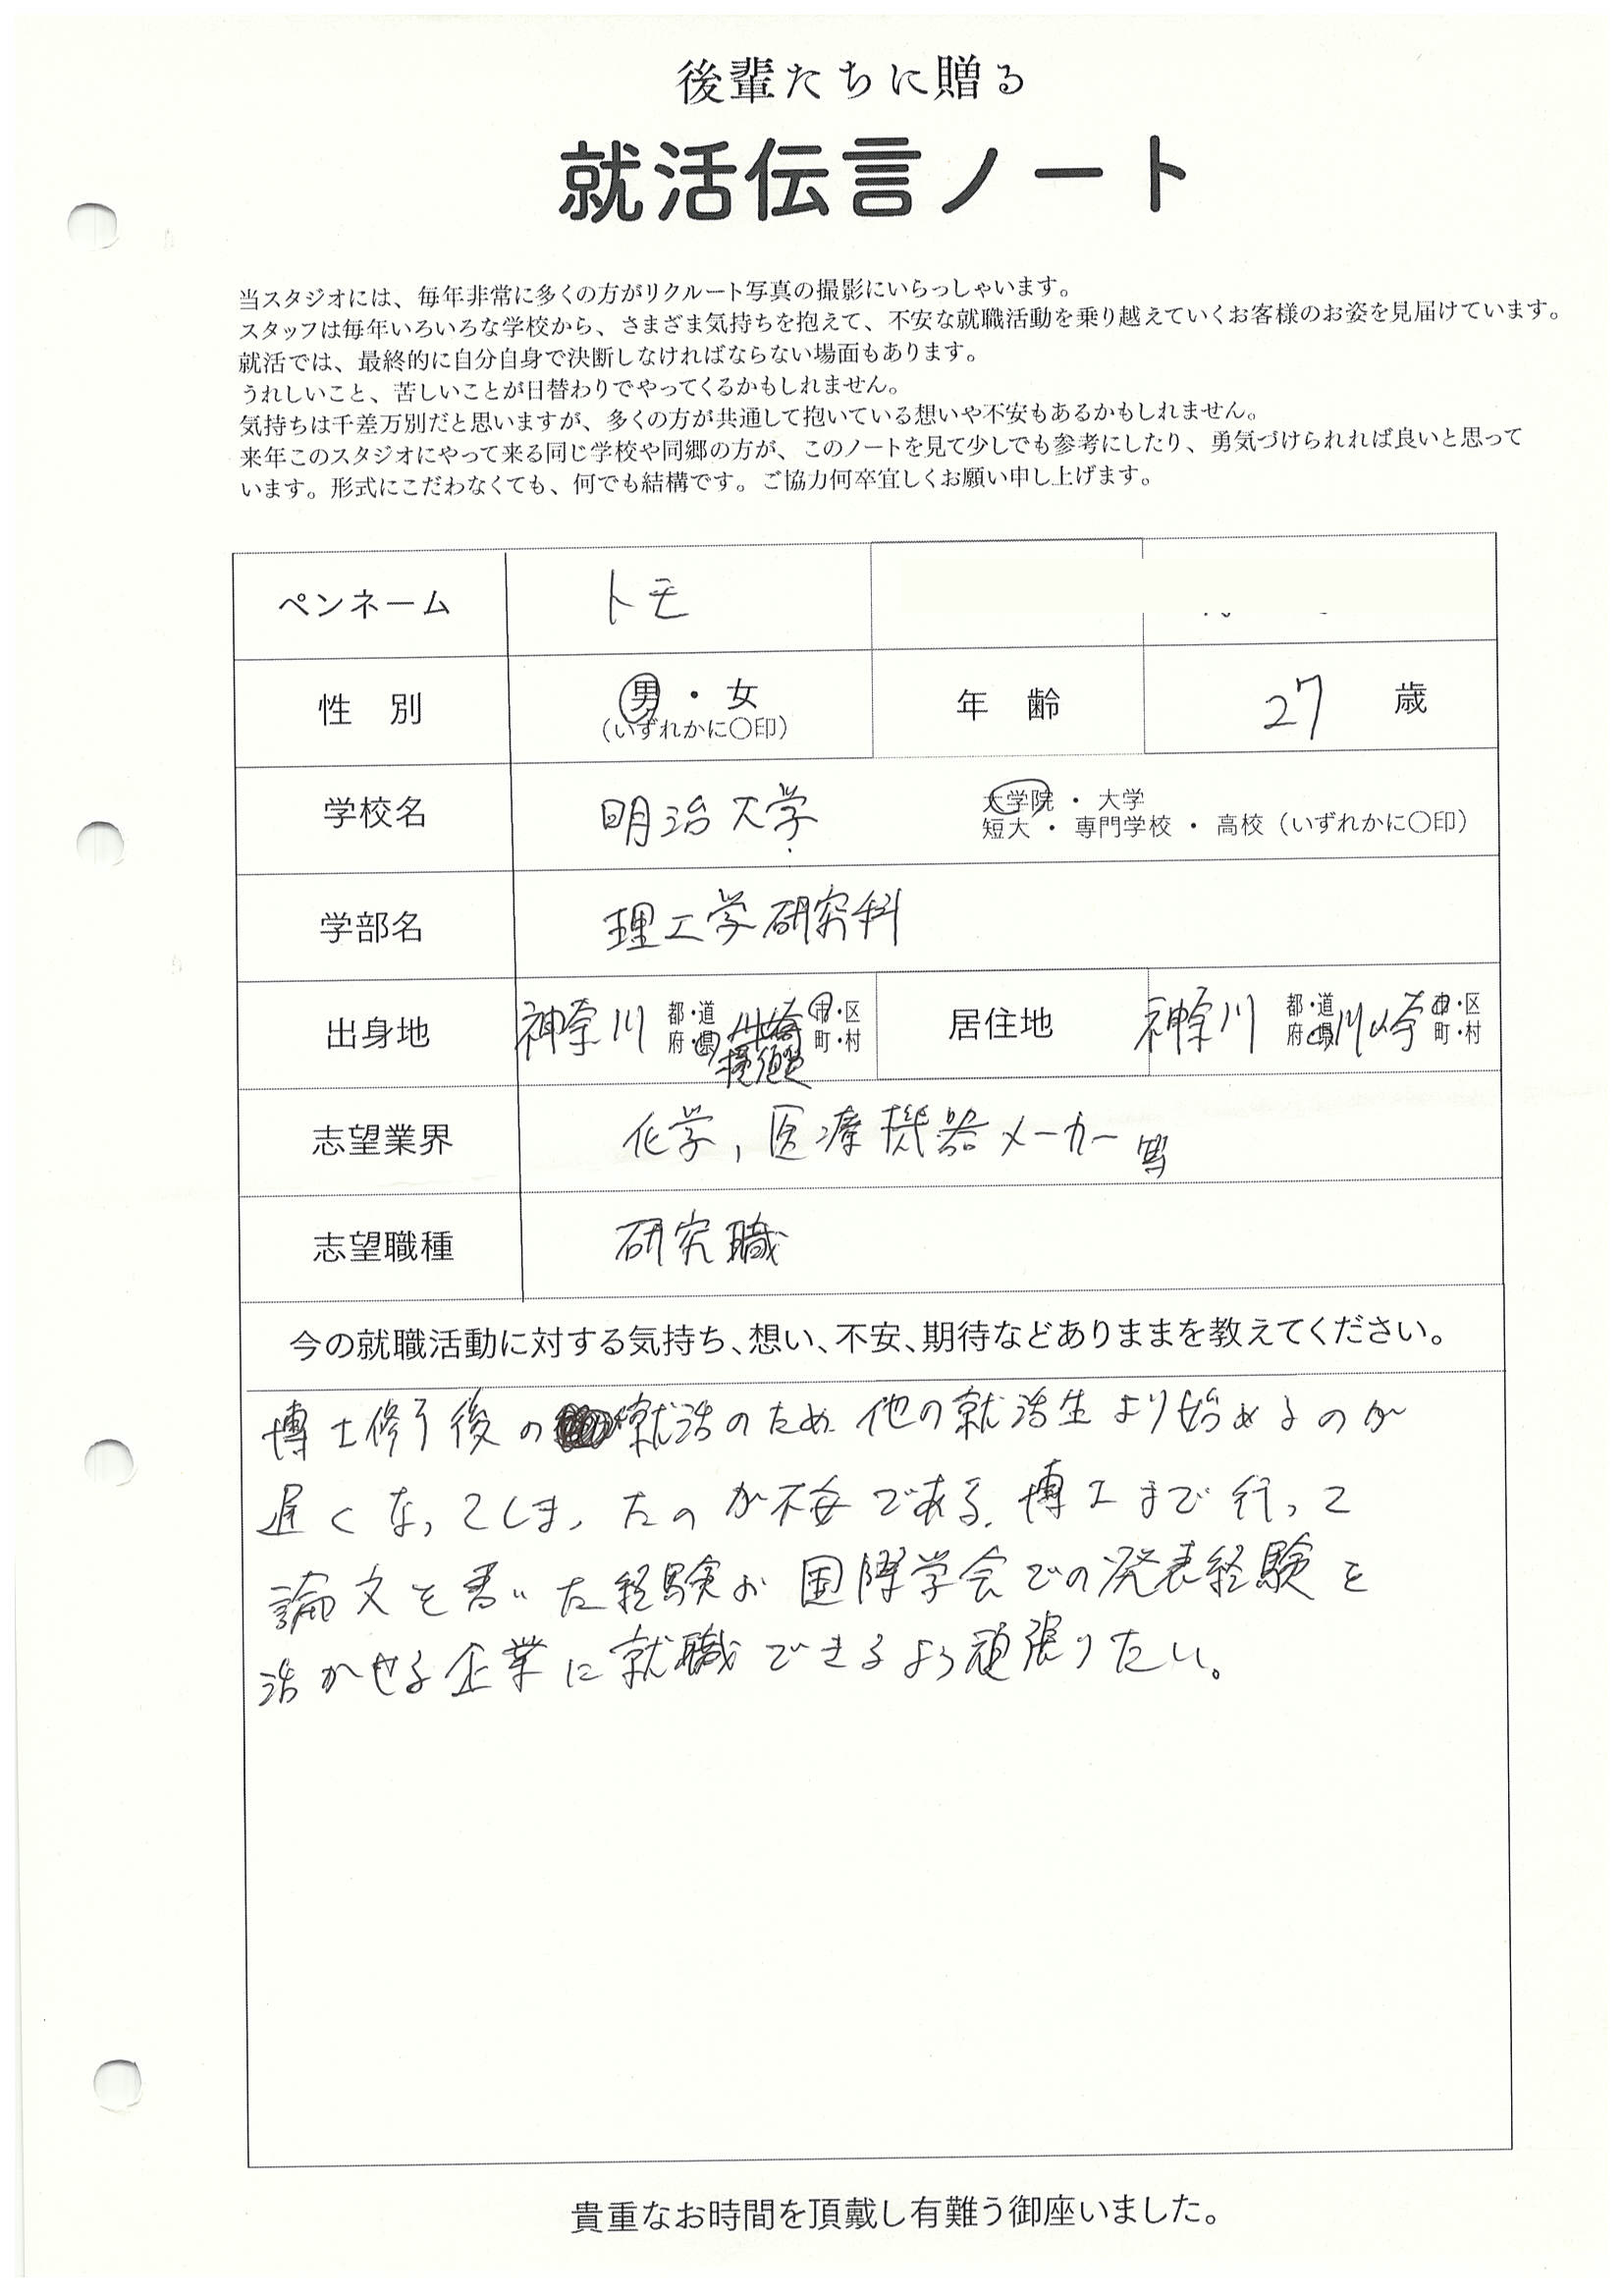 後輩たちに贈る
就活伝言ノート
当スタジオには、毎年非常に多くの方がリクルート写真の撮影にいらっしゃいます。
スタッフは毎年いろいろな学校から、さまざま気持ちを抱えて、不安な就職活動を乗り越えていくお客様のお姿を見届けています。
就活では、最終的に自分自身で決断しなければならない場面もあります。
うれしいこと、苦しいことが日替わりでやってくるかもしれません。
気持ちは千差万別だと思いますが、多くの方が共通して抱いている想いや不安もあるかもしれません。
来年このスタジオにやって来る同じ学校や同郷の方が、このノートを見て少しでも参考にしたり、勇気づけられれば良いと思って
います。形式にこだわなくても、何でも結構です。ご協力何卒宜しくお願い申し上げます。
ペンネーム トモ
性 別 男・女 (いずれかに〇印) 年 齢 27 歳
学校名 明治大学 大学院・大学
短大・専門学校・高校(いずれかに〇印)
学部名 理工学研究科
出身地 神奈川 都・道府・県 横須賀 市・区町・村 居住地 神奈川 都・道府・県 川崎 市・区町・村
志望業界 化学,医療機器メーカー等
志望職種 研究職
今の就職活動に対する気持ち、想い、不安、期待などありままを教えてください。
博士修了後の就活のため他の就活生より始めるのが
遅くなってしまったのが不安である。博士まで行って
論文を書いた経験や国際学会での発表経験を
活かせる企業に就職できるよう頑張りたい。
貴重なお時間を頂戴し有難う御座いました。